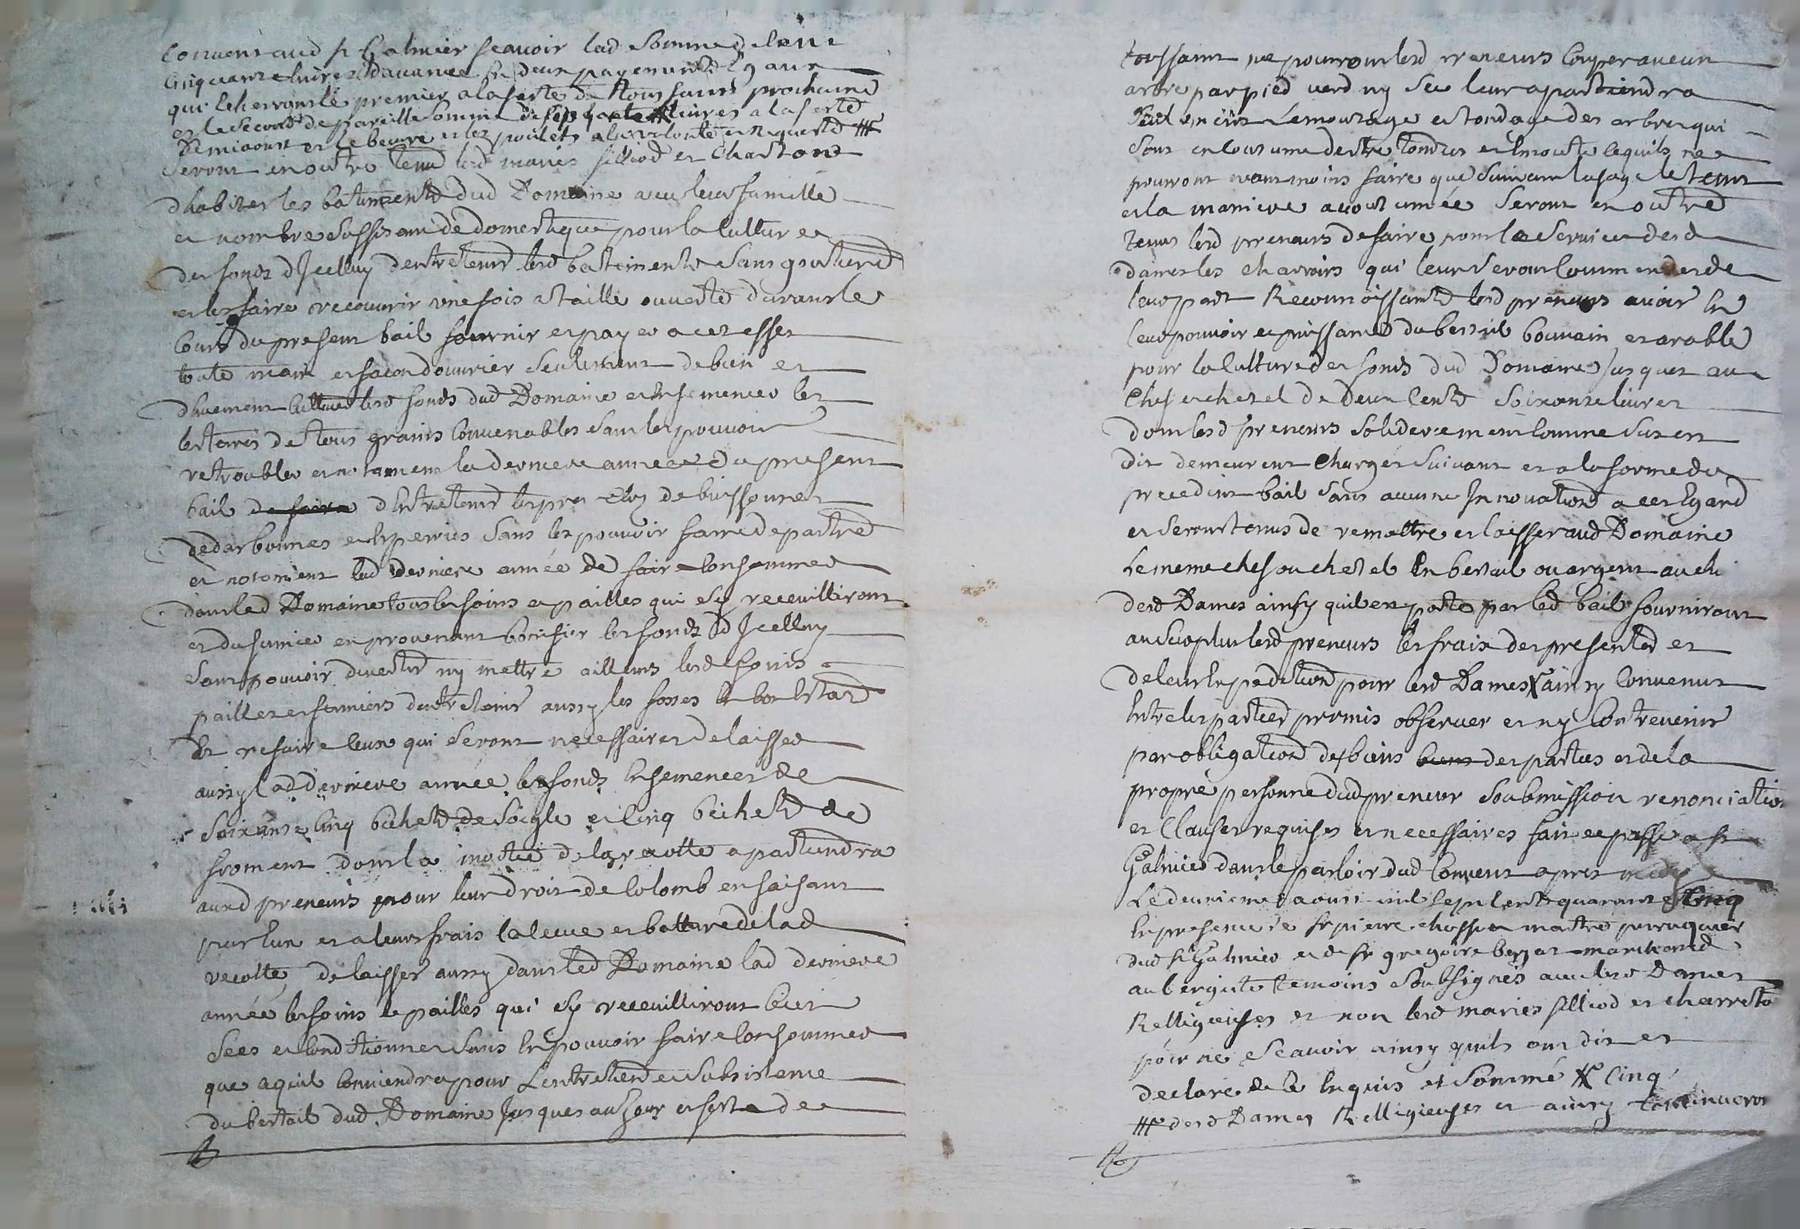 Convent aud st Galmier scavoir lad somme de cent
cinquante livres d'avance en deux payements egaux
qui écherront le premier a la feste de tous saints prochaine
et le second de pareille somme de septante livres a la feste
demi aoust et le beurre et les poulets a leur volonté et requeste #
seront en outre tenu lesd mariés filliod et Charetond
d'habiter les batiments dud Domaine avec leur famille
et nombre suffisant de domestique pour la culture
des fonds d'Jcelluy d'entretenir lesd bastiments sans goutiere
et les faire recouvrir une fois a taille ouverte durant le
cours du present bail fournir et payer a cet effet
toute main et façon d'ouvrier seulement de bien et
dhuement cultiver lesd fonds dud Domaine et ensemencer les
les terres de tous grains convenables sans les pouvoir
retroubler et notamment la derniere année du present
bail de faire d'entretenir les prés clos de buissonner
de darbonnes et epervies sans les pouvoir faire depaitre
et notoment lad derniere année de faire consommer
dans led Domaine tous les foins et pailles qui s'y receuilliront
et du fumier en provenant bonifier les fonds d'Jcelluy
sans pouvoir divertir ny mettre ailleurs lesd foins
pailles et fumiers d'entretenir aussy les fosses en bon estat
et refaire ceux qui seront necessaires de laisser
aussy lad derniere année les fonds ensemencer de
soixante cinq bichets de seigle et cinq bichets de
froment dont la moitié de la recolte apartiendra
auxd preneurs pour leur droit de colomb en faisant
par eux et a leurs frais la levee et batture de lad
recolte de laisser aussy dans led Domaine lad derniere
année les foins et pailles qui s'y receuilliront bien
secs et conditionner sans en pouvoir faire consommer
que a qu'il conviendra pour l'entretien et subsistence
du bertail dud Domaine jusques au jour et feste de
toussaint ne pourront lesd preneurs couper aucun
arbre par pied verd ny sec leur apartiendra
l'emoutage et tondage des arbres qui
sont en coutume destre tondus et emouté lequels ne
pourront neanmoins faire que suivant lusage le temt
et la maniere acoutumée seront en outre
tenus lesd preneurs de faire pour le service desd
dames les charrois qui leur seront commender de
leur part Reconnoissants lesd preneurs avoir en
leur pouvoir et puissance du bertail bouvain et arable
pour la culture des fonds dud Domaine jusques au
chef et chetel de deux cents soixante livres
dont lesd preneurs soliderement comme sus est
dit demeurent charger suivant et a la forme du
precedent bail sans aucune Innovation a cet egard
et seront tenus de remettre et laisser aud Domaine
le meme chef ou chetel en bertail ou argent au choix
desd Dames ainsy quil est porté par led bail fourniront
au surplus lesd preneurs les frais des presentes et
de leur expedition pour lesd Dames X ainsy convenu
entre les parties promis observer et ny contrevenir
par obligation des biens biens des parties et de la
propre personne dud preneur soubmission renonciation
et clauses requises et necessaires fait et passé a st
Galmier dans le parloir dud Convent apres midy
le deuxieme aoust mil sept cents quarante cinq
en presence de sr pierre chossier maitre perruquier
dud st Galmier et de sr gregoire marchand
aubergiste temoins soubsignés avec lesd Dames
Relligieuses et non lesd mariés filliod et charreto
pour ne scavoir ainsy quils ont dit et
declaré de ce enquis et sommé X cinq
# desd Dames Relligieuses et ainsy continueron